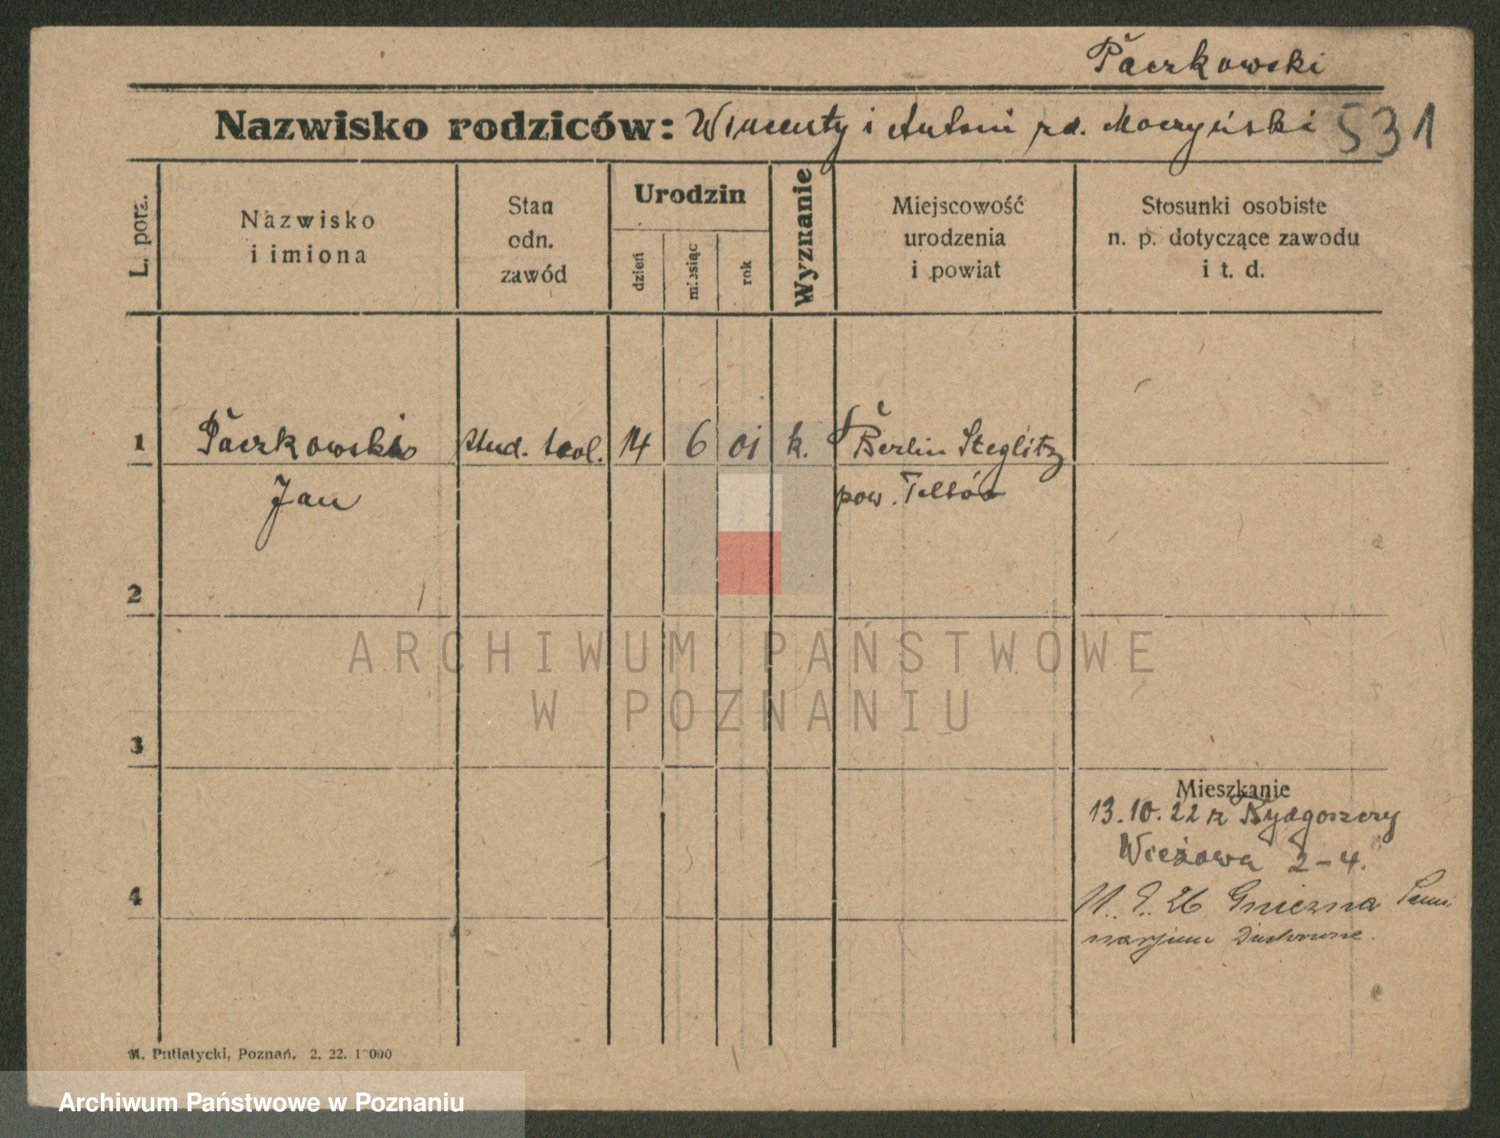 Paczkowski
Nazwisko rodziców: Wincenty i Antoni rd. Moczyński 531
L. porz.
Nazwisko
i imiona
Stan
odn.
zawód
Urodzin
dzień
miesiąc
rok
Wyznanie
Miejscowość
urodzenia
i powiat
Stosunki osobiste
n. p. dotyczące zawodu
i t. d.
1 Paczkowski stud. teol. 14 6 01 k. Berlin Steglitz
Jan pow. Teltów
2
ARCHIWUM PAŃSTWOWE
W POZNANIU
3
Mieszkanie
13.10.22 z Bydgoszczy
Wieżowa 2-4.
4
11. 9. 26 Gniezna Semi
narjum Duchowne.
M. Putiatycki, Poznań. 2. 22.
Archiwum Państwowe w Poznaniu